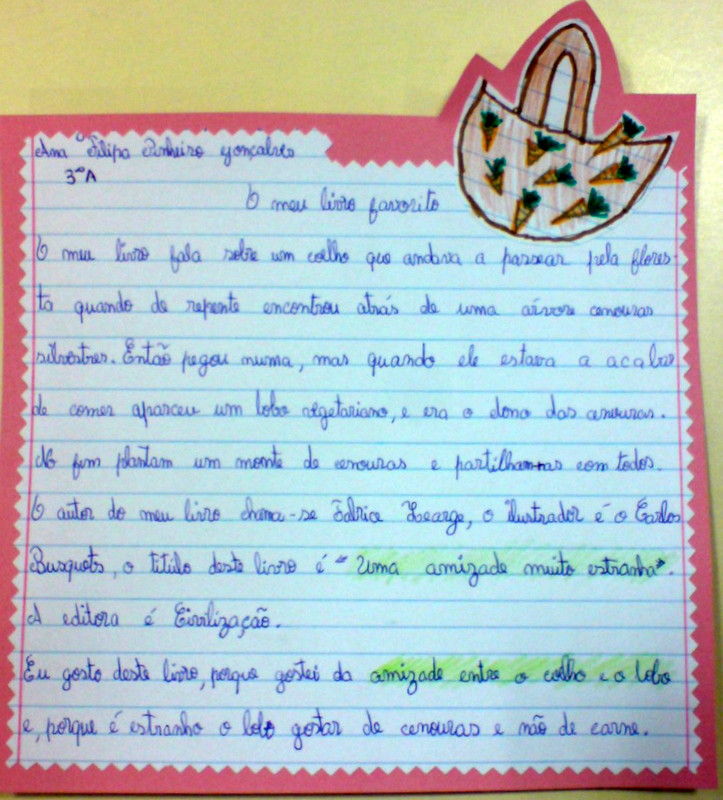 Ana Filipa Pinheiro Gonçalves
3ºA
O meu livro favorito
O meu livro fala sobre um coelho que andava a passear pela flores-
ta quando de repente encontrou atrás de uma árvore cenouras
silvestres. Então pegou numa, mas quando ele estava a acabar
de comer apareceu um lobo vegetariano, e era o dono das cenouras.
No fim plantam um monte de cenouras e partilham-nas com todos.
O autor do meu livro chama-se Fabrice Learge, o ilustrador é o Carlos
Busquets, o titúlo deste livro é "Uma amizade muito estranha".
A editora é Civilização.
Eu gosto deste livro, porque gostei da amizade entre o coelho e o lobo
e, porque é estranho o lobo gostar de cenouras e não de carne.